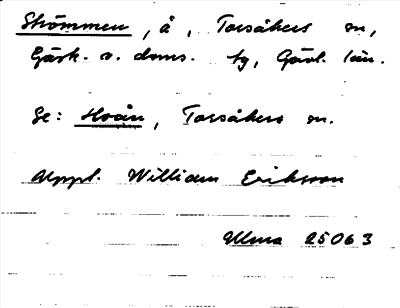 Strömmen, å, Torsåkers sn,
Gästr. v. doms. tg, Gävl. län.
Se: Hoån, Torsåkers sn.
Uppl. William Eriksson
Ulma 25063